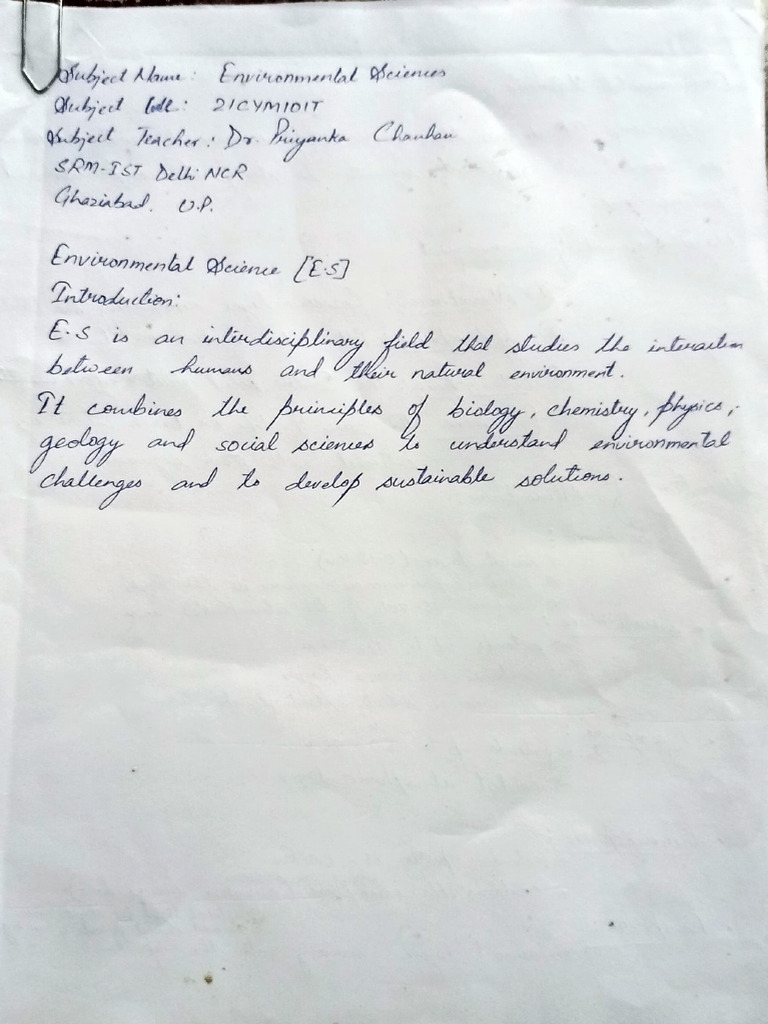 Subject Name: Environmental Sciences
Subject Code: 21CYM101T
Subject Teacher: Dr. Priyanka Chauhan
SRM-IST Delhi NCR
Ghaziabad. U.P.
Environmental Science [E.S]
Introduction:
E.S is an interdisciplinary field that studies the interaction
between humans and their natural environment.
It combines the principles of biology, chemistry, physics,
geology and social sciences to understand environmental
challenges and to develop sustainable solutions.